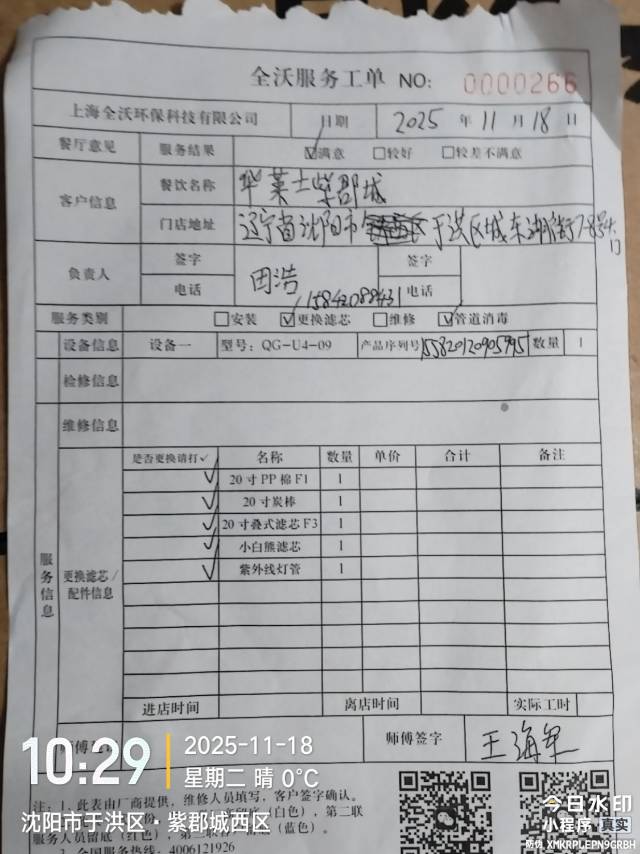 全沃服务工单 NO: 0000266
上海全沃环保科技有限公司 日期 2025 年 11 月 18 日
餐厅意见 服务结果 ☑满意 □较好 □较差不满意
客户信息 餐饮名称 华莱士紫郡城
门店地址 辽宁省沈阳市于洪区城东湖街7-8号
门
负责人 签字 田浩 签字
电话 15842088431 电话
服务类别 □安装 ☑更换滤芯 □维修 ☑管道消毒
设备信息 设备一 型号: QG-U4-09 产品序列号 数量 1
检修信息
维修信息
服务信息
更换滤芯/配件信息
是否更换请打✓ 名称 数量 单价 合计 备注
✓ 20寸PP棉F1 1
✓ 20寸炭棒 1
✓ 20寸叠式滤芯F3 1
✓ 小白熊滤芯 1
✓ 紫外线灯管 1
进店时间 离店时间 实际工时
师傅签字 王海军
注: 1. 此表由厂商提供, 维修人员填写, 客户签字确认。
白色), 第二联
(蓝色)。
3. 全国服务热线: 4006121926
10:29
2025-11-18
星期二 晴 0℃
沈阳市于洪区·紫郡城西区
今日水印
小程序 真实
防伪 XMKRPLEPN9GRBH